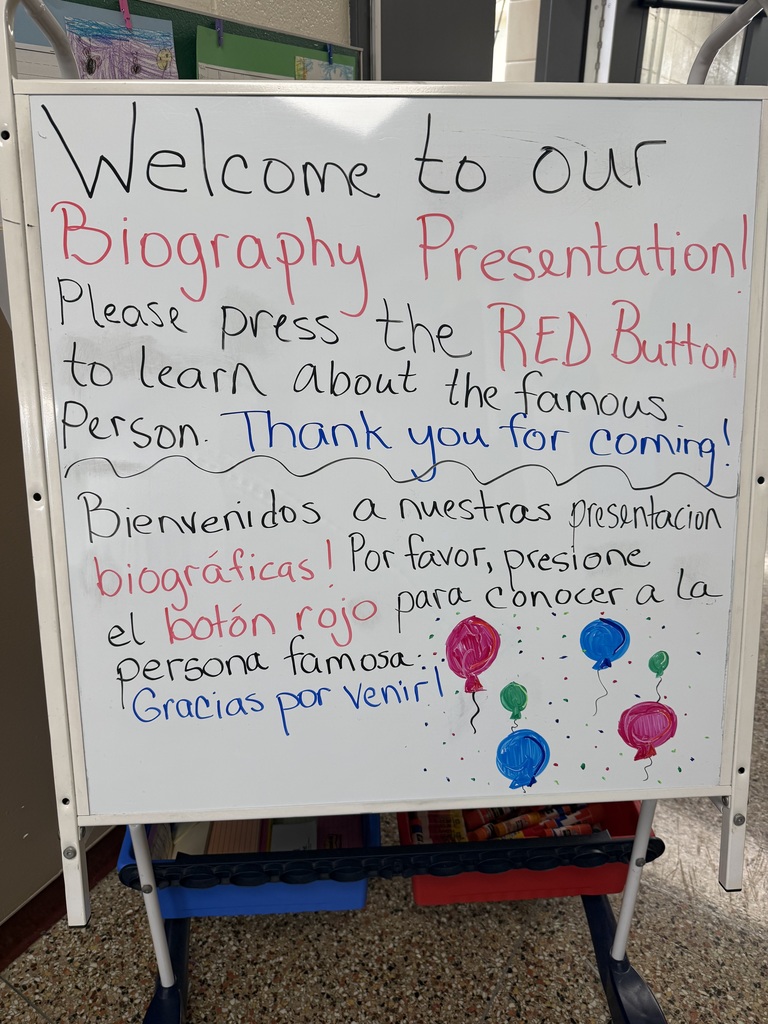 Welcome to our
Biography Presentation!
Please press the RED Button
to learn about the famous
Person. Thank you for coming!
Bienvenidos a nuestras presentacion
biográficas! Por favor, presione
el botón rojo para conocer a la
persona famosa.
Gracias por venir!